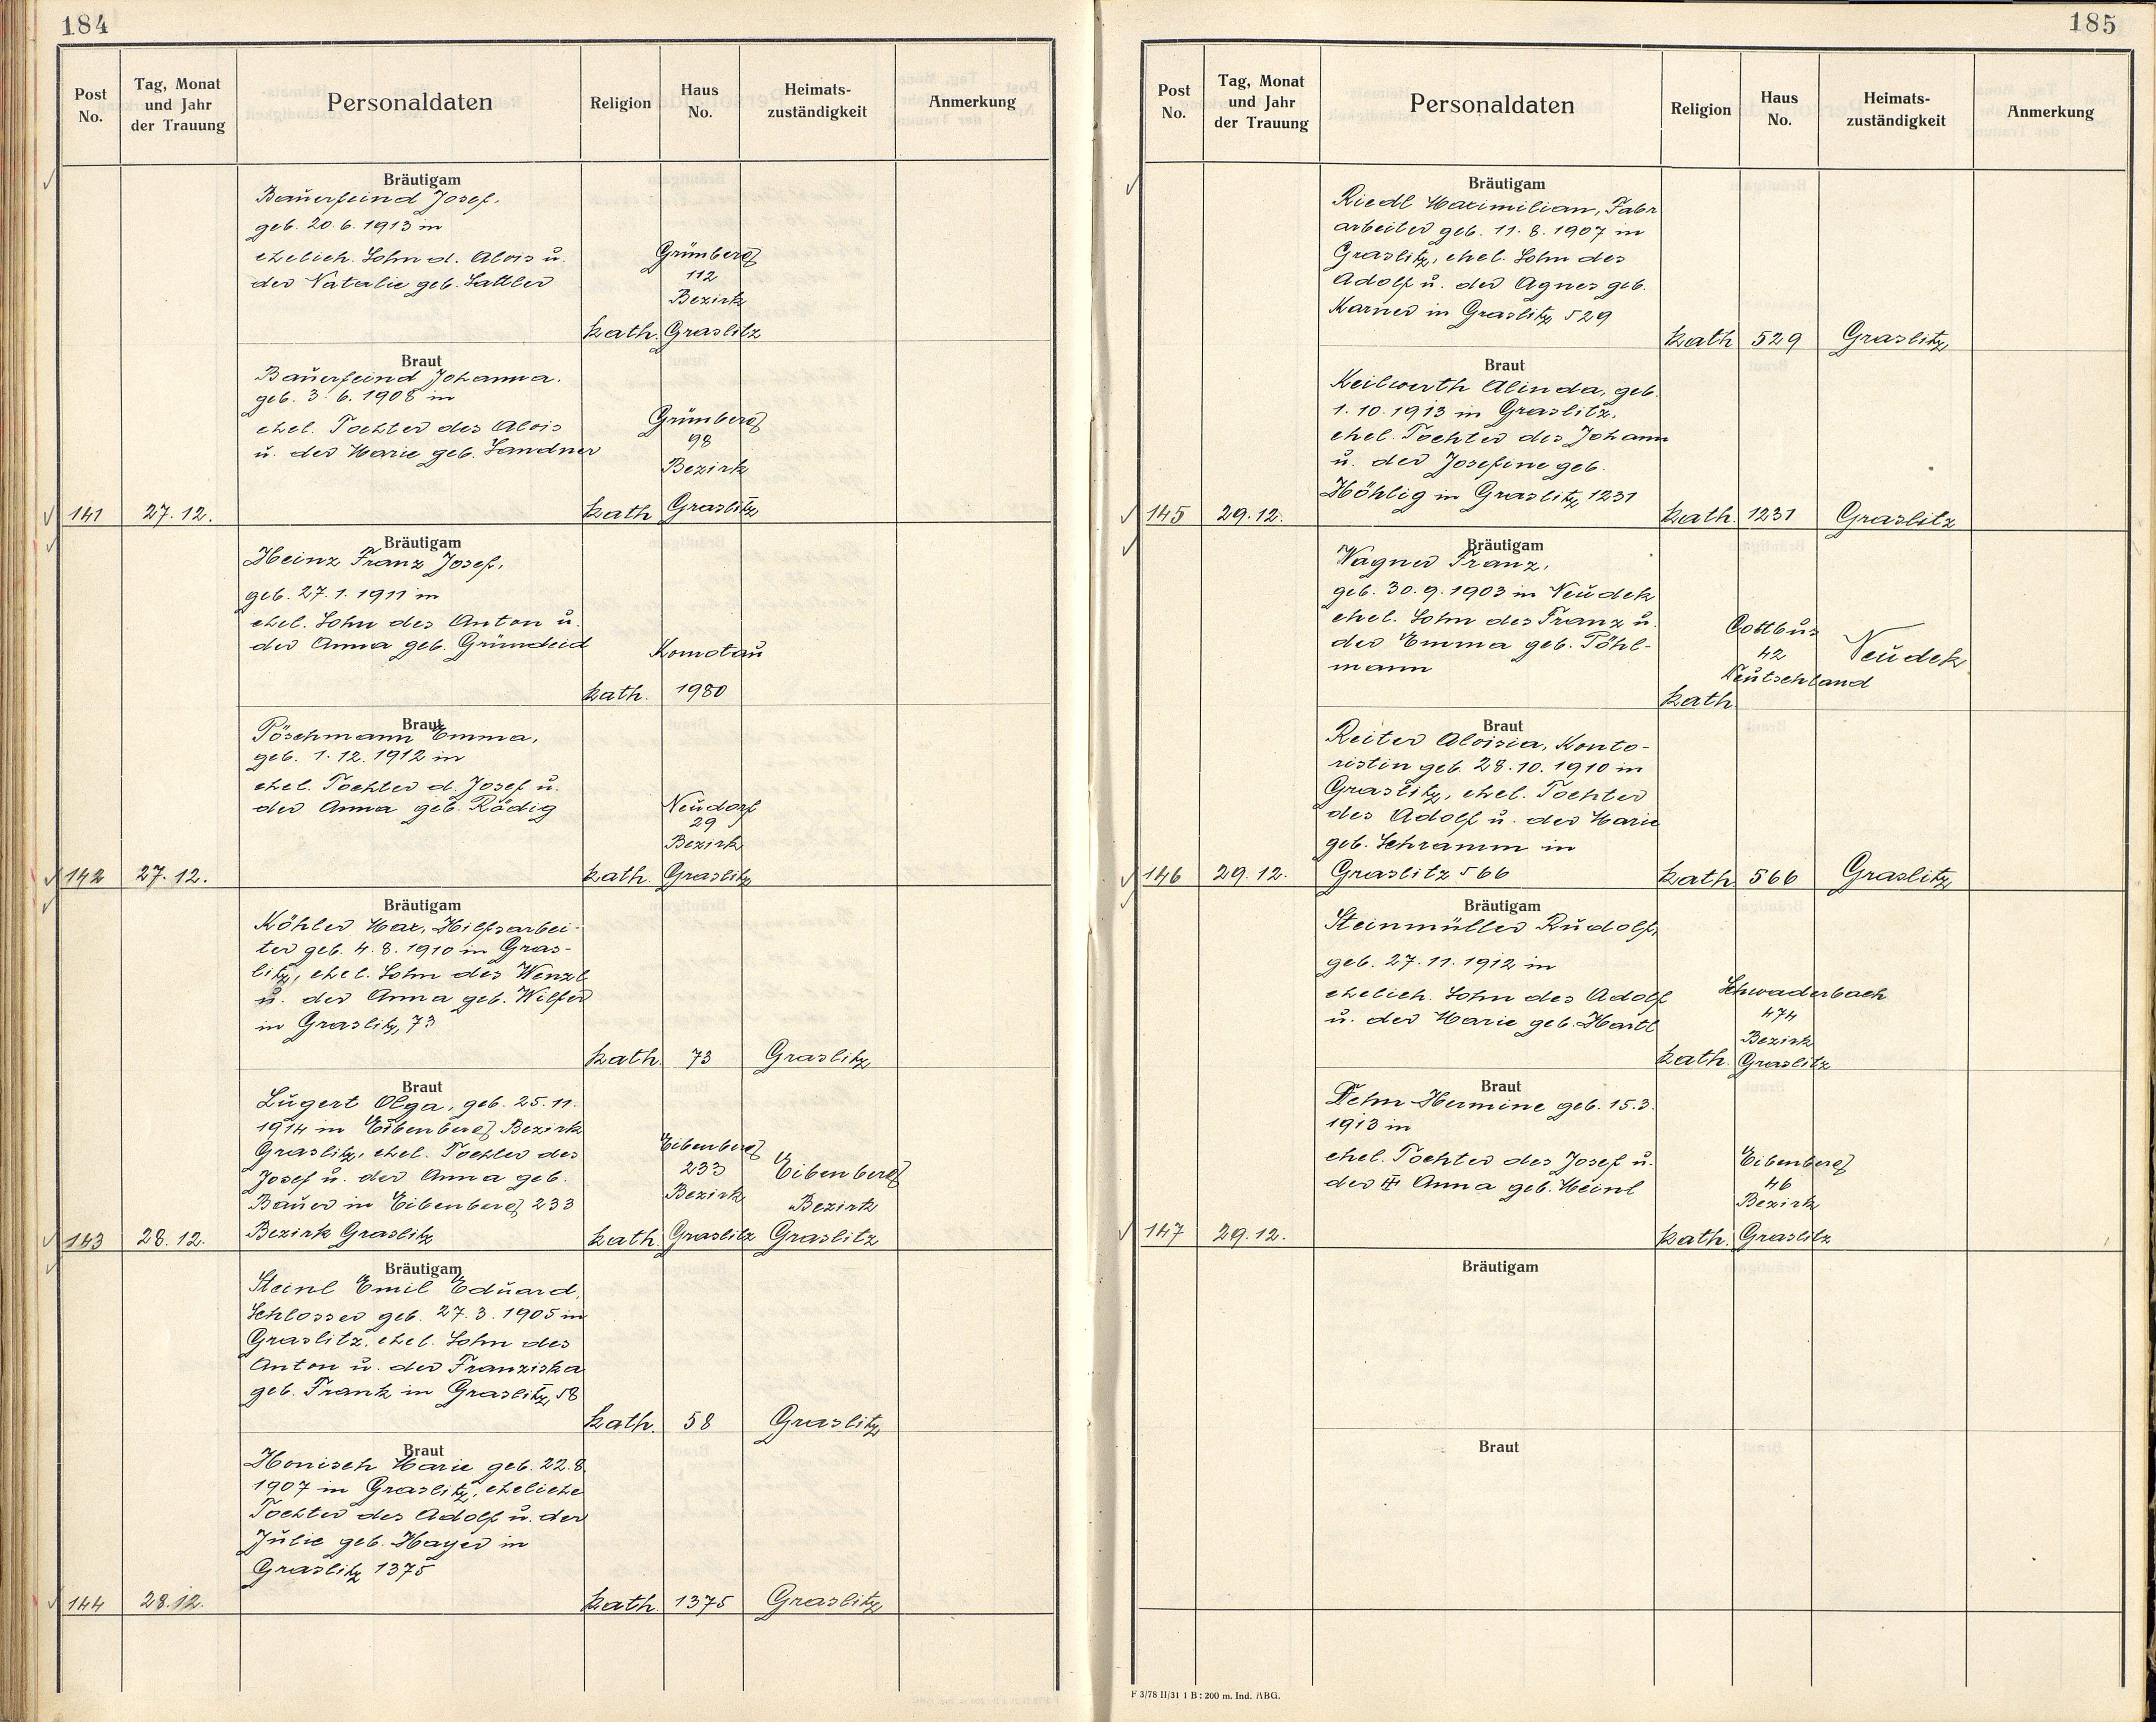 184
Post No.
Tag, Monat und Jahr der Trauung
Personaldaten
Religion
Haus No.
Heimats-zuständigkeit
Anmerkung
Bräutigam
Bauerfeind Josef,
geb. 20. 6. 1913 in
ehelich. Sohn d. Alois u.
der Natalie geb. Sattler
Grünberg
112
Bezirk
kath. Graslitz
Braut
Bauerfeind Johanna.
geb. 3. 6. 1908 in
ehel. Tochter des Alois
u. der Marie geb. Sandner
Grünberg
98
Bezirk
141 27.12. kath Graslitz
Bräutigam
Heinz Franz Josef,
geb. 27. 1. 1911 in
ehel. Sohn des Anton u.
der Anna geb.
Komotau
kath. 1980
Braut
Pöschmann Emma,
geb. 1. 12. 1912 in
ehel. Tochter d. Josef u.
der Anna geb. Rödig
Neudorf
29
Bezirk
142 27.12. kath. Graslitz
Bräutigam
Köhler Max, Hilfsarbei-
ter geb. 4. 8. 1910 in Gras-
litz, ehel. Sohn des Wenzl
u. der Anna geb. Wilfer
in Graslitz, 73
kath. 73 Graslitz
Braut
Lugert Olga, geb. 25. 11.
1914 in Eibenberg Bezirk
Graslitz, ehel. Tochter des
Josef u. der Anna geb.
Bauer in Eibenberg 233
Bezirk Graslitz
Eibenberg
233
Bezirk
Graslitz
Eibenberg
Bezirk
Graslitz
143 28.12. kath.
Bräutigam
Steinl Emil Eduard,
Schlosser geb. 27. 3. 1905 in
Graslitz, ehel. Sohn des
Anton u. der Franziska
geb. Frank in Graslitz, 58
kath. 58 Graslitz
Braut
Honisch Marie geb. 22. 8.
1907 in Graslitz, eheliche
Tochter des Adolf u. der
Julie geb. Hayer in
Graslitz 1375
144 28.12. kath. 1375 Graslitz
185
Post No.
Tag, Monat und Jahr der Trauung
Personaldaten
Religion
Haus No.
Heimats-zuständigkeit
Anmerkung
Bräutigam
Riedl Maximilian, Fabr
arbeiter geb. 11. 8. 1907 in
Graslitz, ehel. Sohn des
Adolf u. der Agnes geb.
Karner in Graslitz 529
kath 529 Graslitz
Braut
Keilwerth Alinda, geb.
1. 10. 1913 in Graslitz,
ehel. Tochter des Johann
u. der Josefine geb.
Höhlig in Graslitz 1231
145 29.12. kath. 1231 Graslitz
Bräutigam
Wagner Franz,
geb. 30. 9. 1903 in Neudek
ehel. Sohn des Franz u.
der Emma geb. Pöhl-
mann
Cottbus
42
Deutschland
Neudek
kath
Braut
Reiter Aloisia, Konto-
ristin geb. 28. 10. 1910 in
Graslitz, ehel. Tochter
des Adolf u. der Marie
geb. Schramm in
Graslitz 566
146 29.12. kath. 566 Graslitz
Bräutigam
Steinmüller Rudolf,
geb. 27. 11. 1912 in
ehelich. Sohn des Adolf
u. der Marie geb. Hartl
Schwaderbach
474
Bezirk
kath. Graslitz
Braut
Dehm Hermine geb. 15. 3.
1913 in
ehel. Tochter des Josef u.
der Anna geb. Meinl
Eibenberg
46
Bezirk
147 29.12. kath. Graslitz
Bräutigam
Braut
F 3/78 II/31 1 B : 200 m. Ind. ABG.